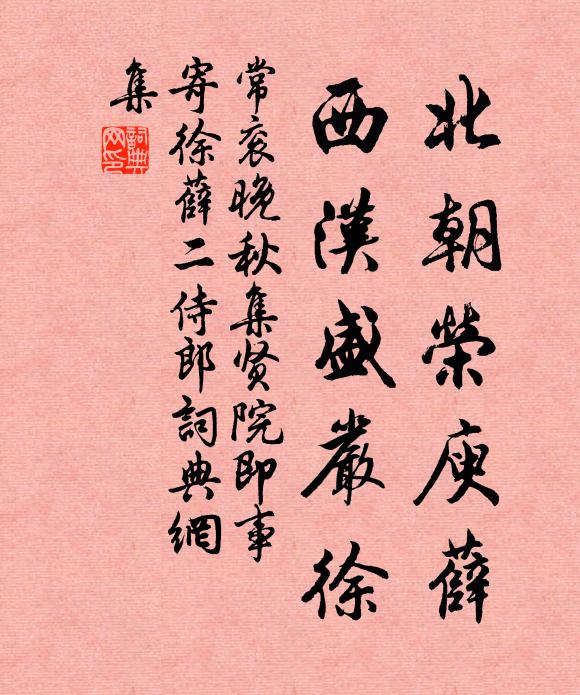 北朝榮庾薛
西漢盛嚴徐
常袞晚秋集贤院即事
寄徐薛二侍郎詞典網
集
詞典
网印